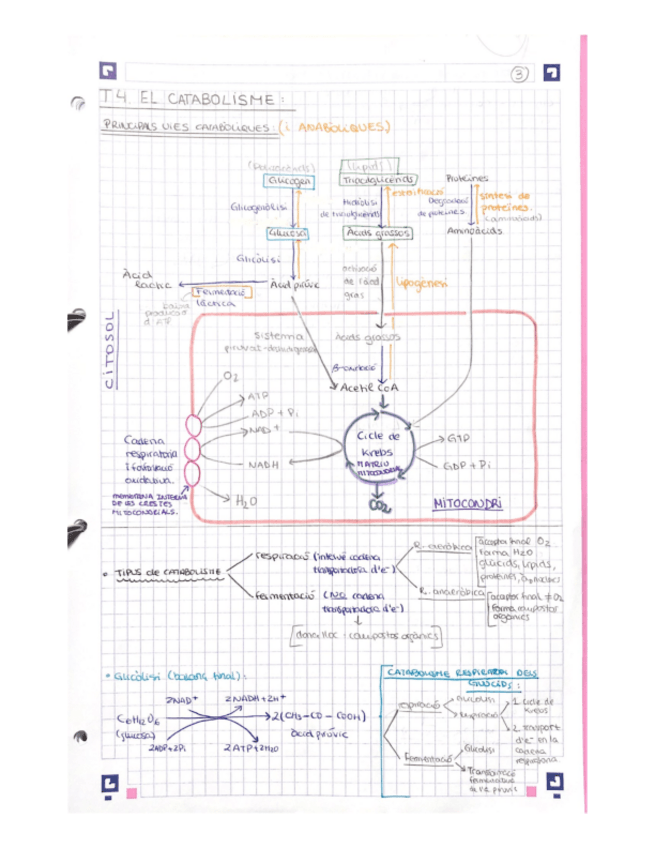 3
T.4. EL CATABOLISME:
PRINCIPALS VIES CATABÒLIQUES: (i ANABÒLIQUES)
(Polisacàrids)
(Lípids)
Glucogen
Triacilglicèrids
Proteïnes
Glicogenòlisi
Hidròlisi
de triacilglicèrids
esterificació
Degradació
de proteïnes
síntesi de
proteïnes.
(aminoàcids)
Glucosa
Àcids grassos
Aminoàcids
Glicòlisi
Àcid
làctic
Fermentació
làctica
Àcid pirúvic
activació
de l'àcid
gras
lipogènesi
baixa
producció
d'ATP
CITOSOL
Sistema
piruvat-deshidrogenasa
Àcids grassos
β-oxidació
Acetil CoA
O2
ATP
ADP + Pi
NAD+
NADH
H2O
Cadena
respiratòria
i fosforilació
oxidativa.
MEMBRANA INTERNA
DE LES CRESTES
MITOCONDRIALS.
Cicle de
Krebs
MATRIU
MITOCONDRIAL
GTP
GDP + Pi
CO2
MITOCONDRI
• TIPUS de CATABOLISME
respiració (intervé cadena
transportadora d'e-)
R. aeròbica
acceptor final O2
forma H2O
glúcids, lípids,
R. anaeròbica
acceptor final ≠ O2
forma compostos
orgànics
fermentació (NO cadena
transportadora d'e-)
dona lloc compostos orgànics
• Glicòlisi (balanç final):
2NAD+
2NADH+2H+
C6H12O6
(glucosa)
2(CH3-CO-COOH)
àcid pirúvic
2ADP+2Pi
2ATP+2H2O
CATABOLISME RESPIRATORI DELS
GLÚCIDS:
respiració
Glicòlisi
Respiració
1. Cicle de
Krebs
2. transport
d'e- en la
cadena
respiratòria
Fermentació
Glicòlisi
Transformació
fermentativa